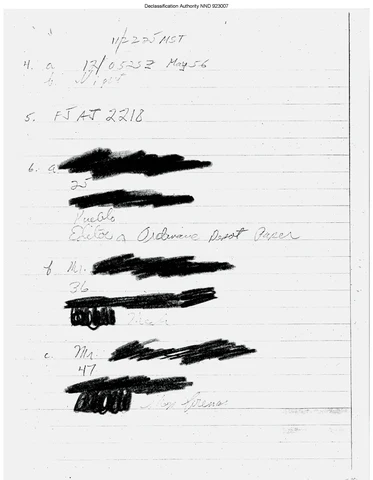 Declassification Authority NND 923007
11/2225 MST
4. a 12/0525Z May 56
b. Night
5. FJ AJ 2218
6. a
25
Pueblo
Editor Ordnance Depot Paper
b Mr.
36
c. Mr.
47